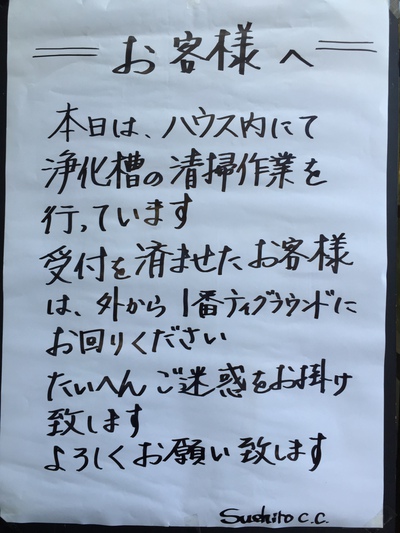 お客様へ
本日は、ハウス内にて
浄化槽の清掃作業を
行っています
受付を済ませたお客様
は、外から1番ティグラウンドに
お回りください
たいへんご迷惑をお掛け
致します
よろしくお願い致します
Suehiro C.C.